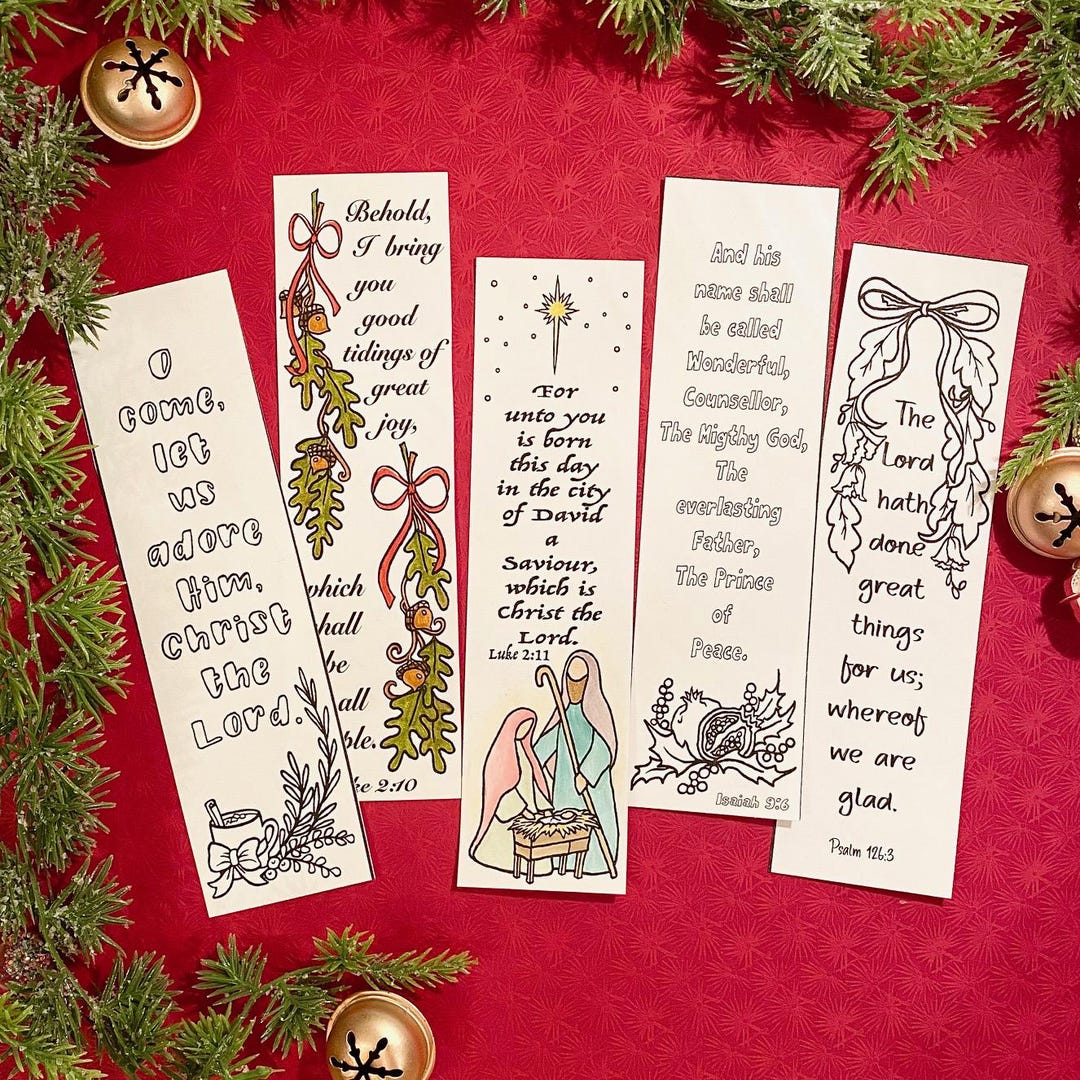 O
come,
let
us
adore
Him,
Christ
the
Lord.
Behold,
I bring
you
good
tidings of
great
joy,
which
hall
be
all
ple.
ke 2:10
For
unto you
is born
this day
in the city
of David
a
Saviour,
which is
Christ the
Lord.
Luke 2:11
And his
name shall
be called
Wonderful,
Counsellor,
The Migthy God,
The
everlasting
Father,
The Prince
of
Peace.
Isaiah 9:6
The
Lord
hath
done
great
things
for us;
whereof
we are
glad.
Psalm 126:3